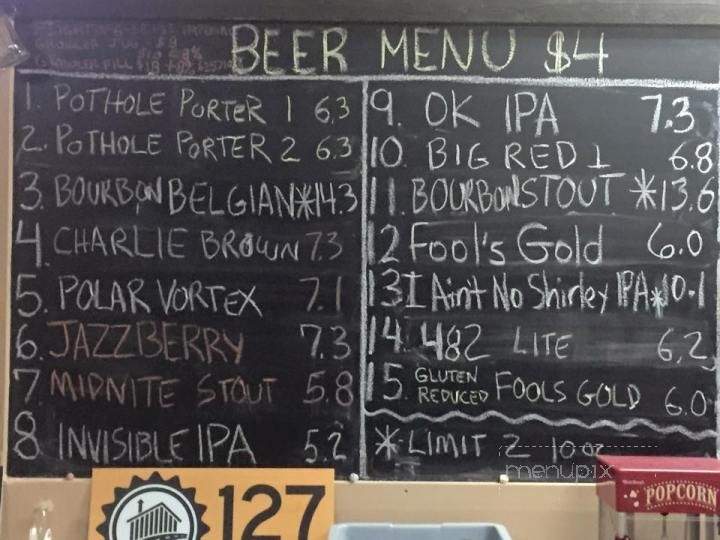 BEER MENU $4
GROWLER JUG $8
1. POTHOLE PORTER 1 6.3
2. POTHOLE PORTER 2 6.3
3. BOURBON BELGIAN*14.3
4. CHARLIE BROWN 7.3
5. POLAR VORTEX 7.1
6. JAZZBERRY 7.3
7. MIDNITE STOUT 5.8
8. INVISIBLE IPA 5.2
9. OK IPA 7.3
10. BIG RED 1 6.8
11. BOURBON STOUT *13.6
12 Fool's Gold 6.0
13 I Ain't No Shirley IPA*10.1
14. 482 LITE 6.2
15. GLUTEN REDUCED FOOLS GOLD 6.0
*-LIMIT 2 10 oz
menupix
127
POPCORN